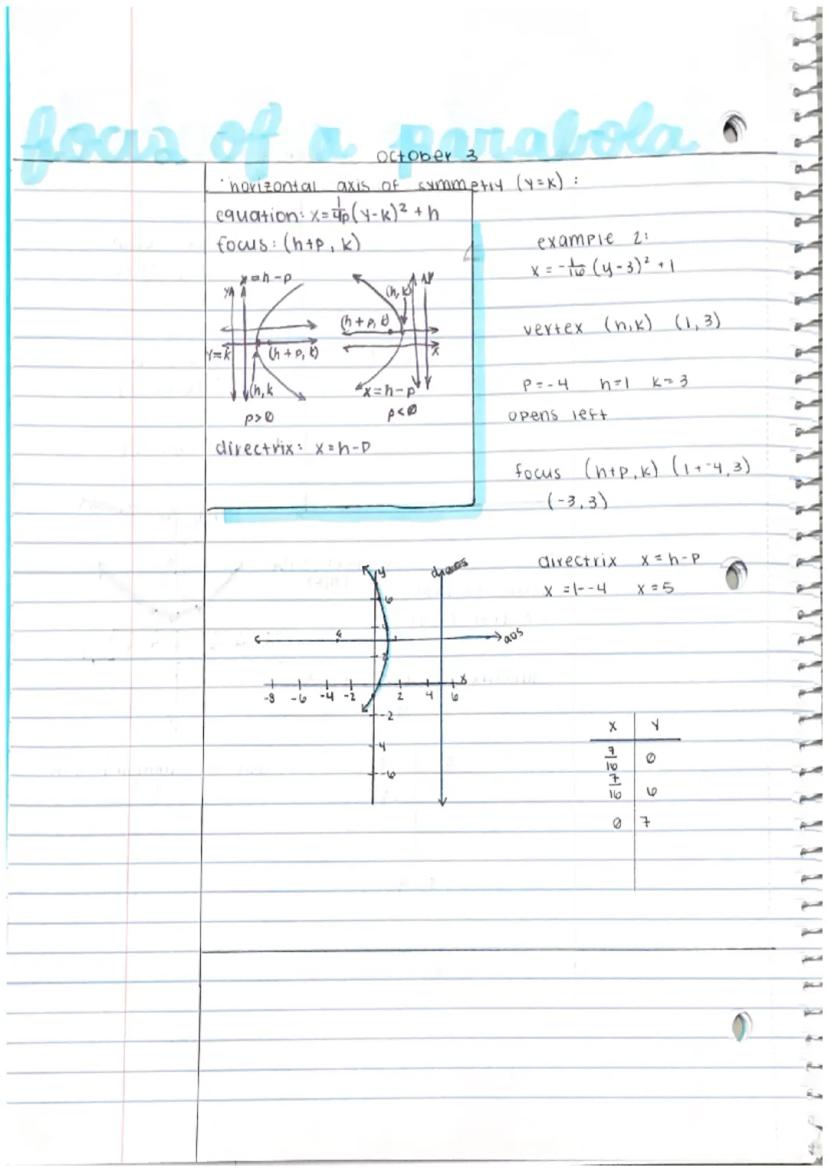 focus of a parabola
october 3
horizontal axis of symmetry (y=k) :
equation: x = 1/4p (y-k)² + h
focus: (h+p, k)
x=h-p
y
(h, k)
y
(h+p, k)
y=k
(h+p, k)
x
(h, k
x=h-p
p>0
p<0
directrix: x=h-p
example 2:
x = -1/16 (y-3)² + 1
vertex (h,k) (1,3)
p=-4 h=1 k=3
opens left
focus (h+p,k) (1+-4,3)
(-3,3)
directrix x=h-p
x=1--4 x=5
y
6
4
2
aos
-8 -6 -4 -2 2 4 6 x
-2
-4
-6
x y
7/16 0
7/16 6
0 7